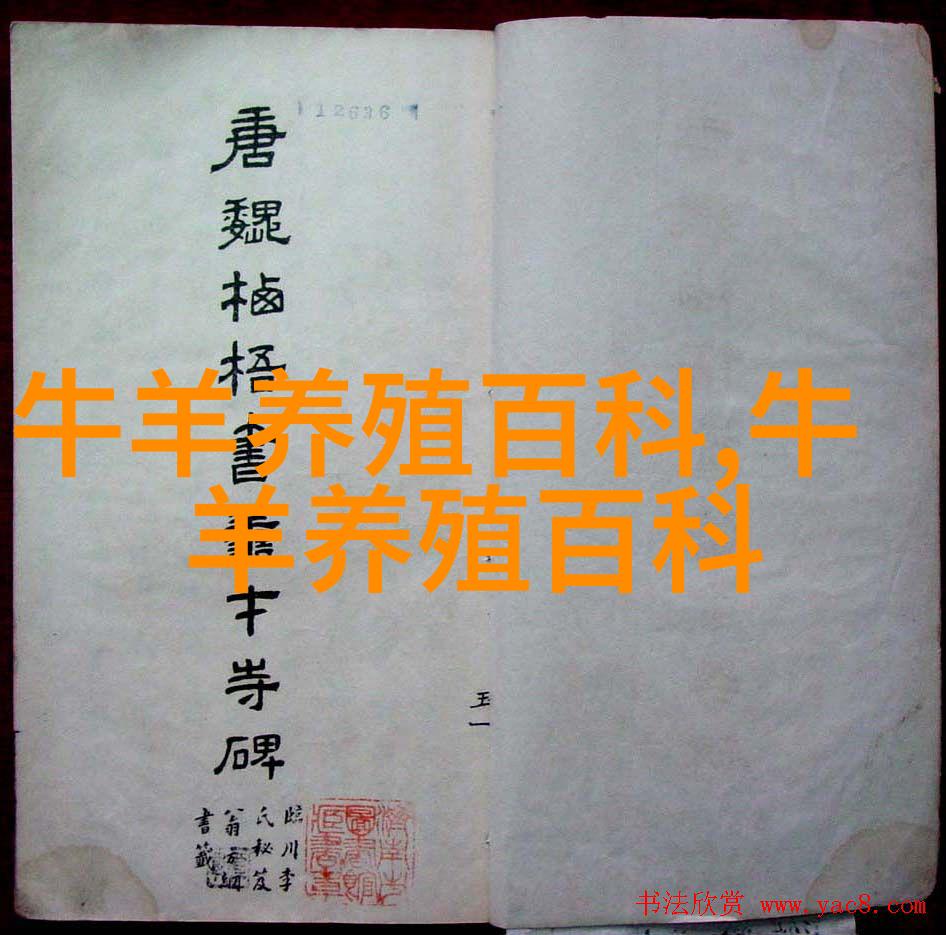 12636
唐魏栖梧書善才寺碑
臨川李
氏秘笈
翁方綱
書籤
牛羊养殖百科,牛
羊养殖百科
书法欣赏 www.yac8.com